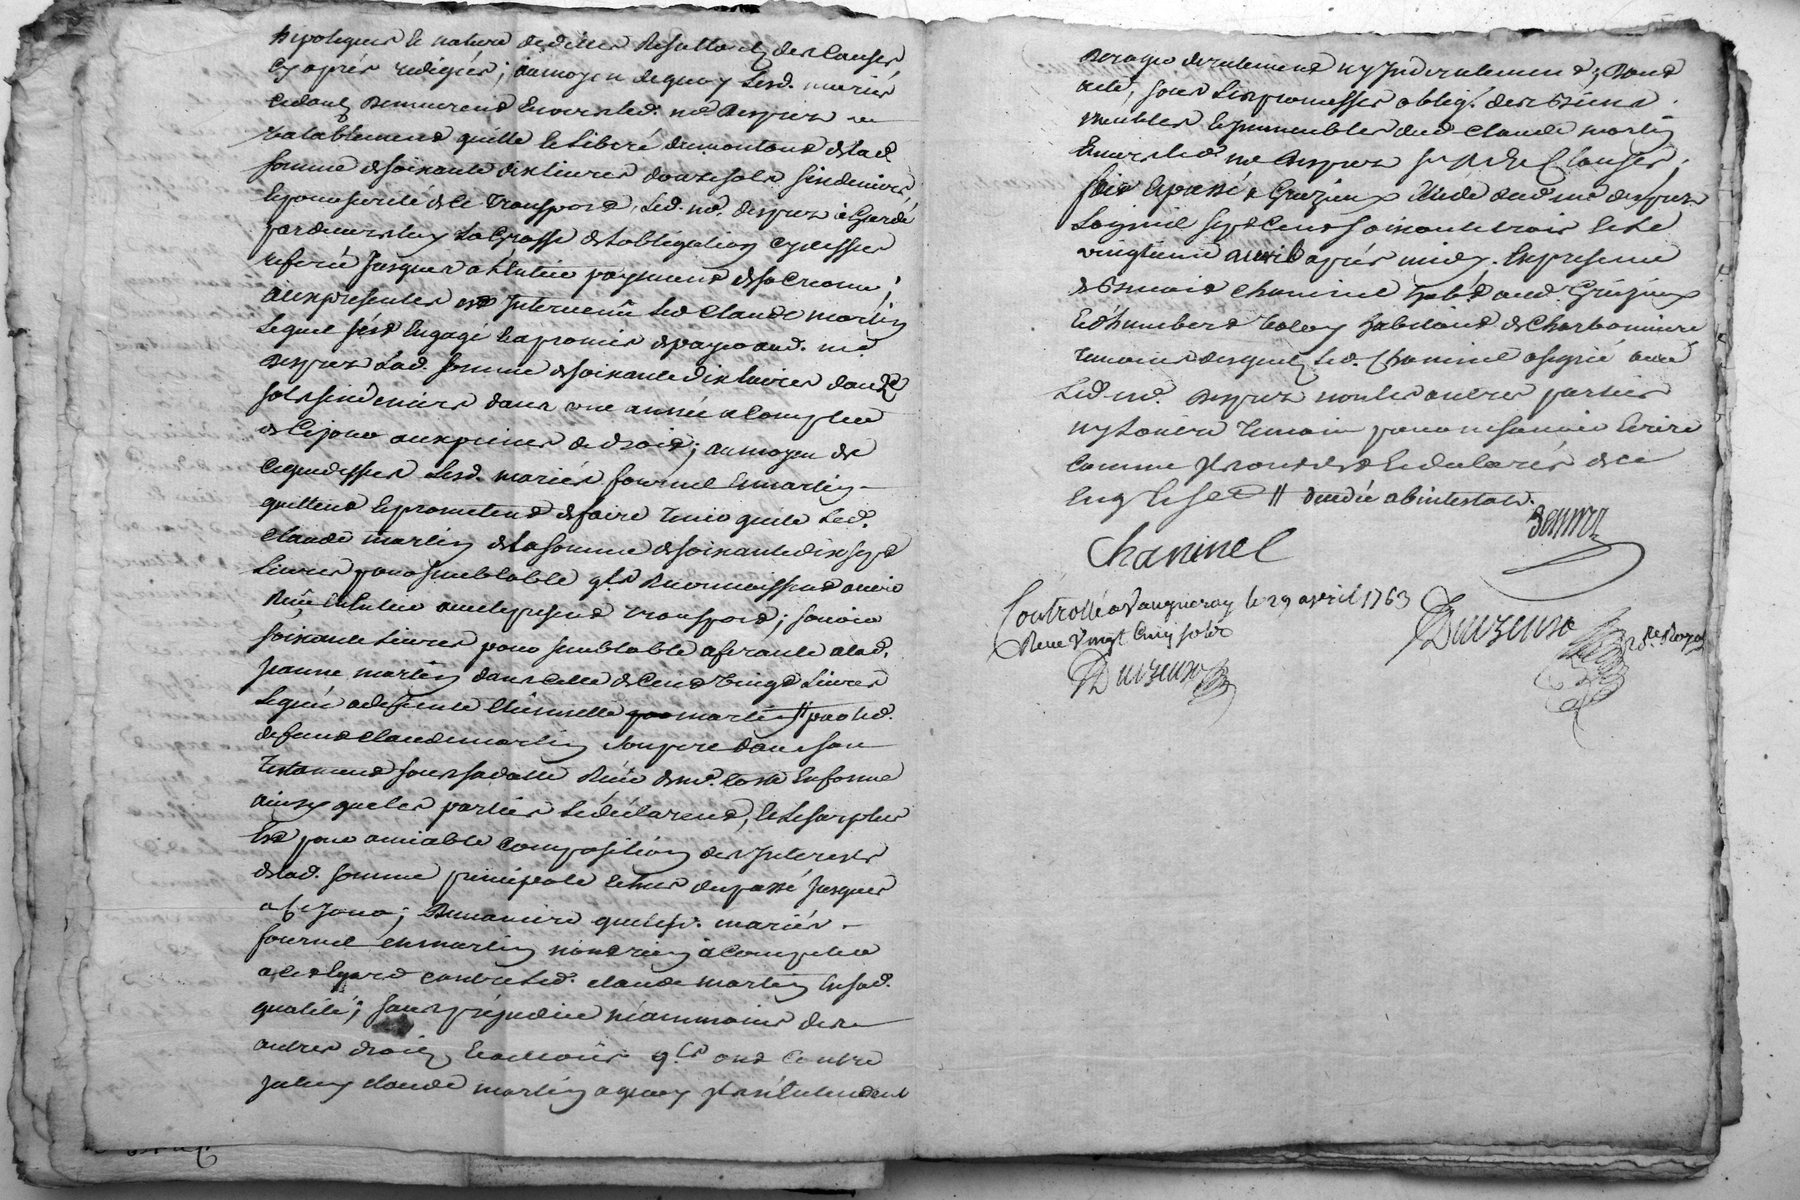 hipoteques et nature dicelles Resultant des Clauses
cy après redigées; au moyen de quoy Lesd. mariés
cedants demeurent Envers led. me despres
valablement quitte et Liberé du montant de lad.
somme de soixante dix livres douze sols six deniers,
Et pour sureté de ce transport, Led. me. despres a Gardé
pardevers luy La Grosse de Lobligation cy dessus
referée jusques a Lentier payement de sa creance;
aux presentes est Intervenû Led Claude martin
Lequel s'est Engagé et a promis de payer aud. me.
despres Lad. somme de soixante dix livres douze
sols six deniers dans une année a Compter
de Ce jour aux peines de droit; au moyen de
Ce que dessus Lesd. mariés fournel et martin
quittent et prometent de faire tenir quite Led.
Claude martin de la somme de soixante dix sept
Livres pour semblable qls Reconnoissent avoir
Reçû Et Entier avec le present transport; scavoir
soixante Livres pour semblable aferante a lad.
jeanne martin dans celle de Cent vingt Livres
Leguée a defunte Etiennette martin // par led.
defunt claude martin son pere dans son
testament sous sa datte Reçu de me. Coste En forme
ainsy que les parties Le déclarent, et Le surplus
Est pour amiable composition des Interets
de lad. somme principale Echus du passé jusques
a Ce jour; de maniere que lesd. mariés
fournel et martin n'ont rien à Compter
a Cet Egard contre Led. claude martin En sad.
qualité; sans préjudice néammoins des
autres droits Et actions qls ont Contre
jceluy claude martin a quoy jls n'Entendent
deroger directement ny Indirectement; dont
acte, sous Les promesses oblig. des Biens
meubles et jmmeubles dud claude martin
Envers led me despres Clauses;
fait Et passé a Grezieux Etude dud me despres
Lan mil sept Cent soixante trois Et Le
vingtieme avril après midy. En presence
de Benoit chaninel habt. aud. Grézieux
Et d'humbert habitant de charbonniere
temoins desquels Led. Chaninel a signé avec
Led. me. despres non les autres parties
ny Lautre temoin pour ne scavoir Ecrire
Comme jls ont dit Et déclaré de ce
Enquis et // décédée abintestat.
chaninel
Controllé a Vaugneray le 29 avril 1763
Reçu Vingt Cinq sols